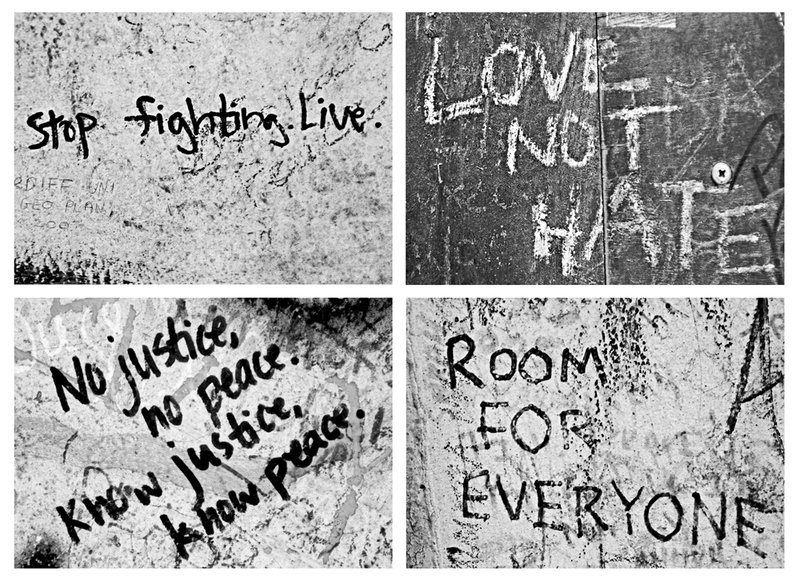 Stop fighting. Live.
RDIFF UNI
GEO PLAN
LOVE
NOT
HATE
No justice,
no peace.
Know justice,
know peace.
ROOM
FOR
EVERYONE